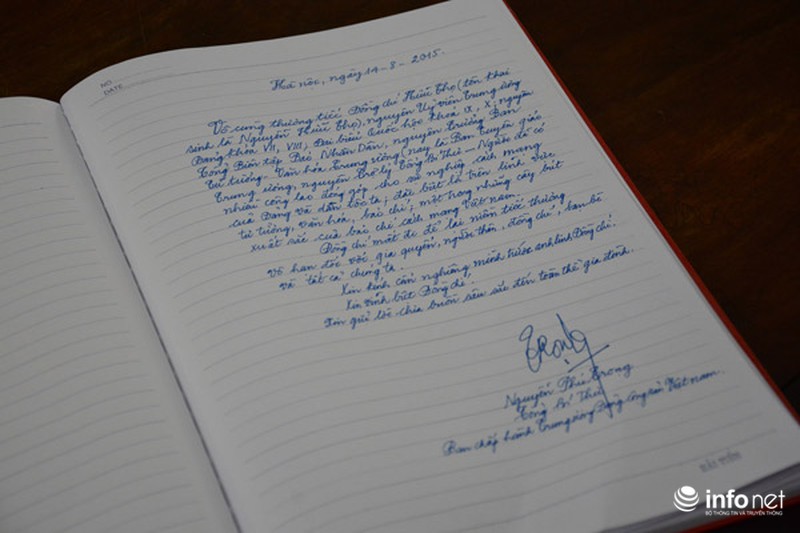 NO
DATE
Hà nội, ngày 14-8-2015.
Vô cùng thương tiếc Đồng chí Hữu Thọ (tên khai
sinh là Nguyễn Hữu Thọ), nguyên Uỷ viên Trung ương
Đảng khóa VII, VIII; Đại biểu Quốc hội khóa IX, X; nguyên
Tổng Biên tập Báo Nhân Dân, nguyên Trưởng Ban
Tư tưởng - Văn hóa Trung ương (nay là Ban Tuyên giáo
Trung ương), nguyên Trợ lý Tổng Bí Thư - Người đã có
nhiều công lao đóng góp cho sự nghiệp cách mạng
của Đảng và dân tộc ta; đặc biệt là trên lĩnh vực
tư tưởng, văn hóa, báo chí; một trong những cây bút
xuất sắc của báo chí cách mạng Việt nam.
Đồng chí mất đi để lại niềm tiếc thương
vô hạn đối với gia quyến, người thân, đồng chí, bạn bè
và tất cả chúng ta.
Xin kính cẩn nghiêng mình trước anh linh Đồng chí.
Xin vĩnh biệt Đồng chí.
Xin gửi lời chia buồn sâu sắc đến toàn thể gia đình.
Trọng
Nguyễn Phú Trọng
Tổng Bí Thư
Ban chấp hành Trung ương Đảng cộng sản Việt nam.
HẢI TIẾN
infonet
BỘ THÔNG TIN VÀ TRUYỀN THÔNG